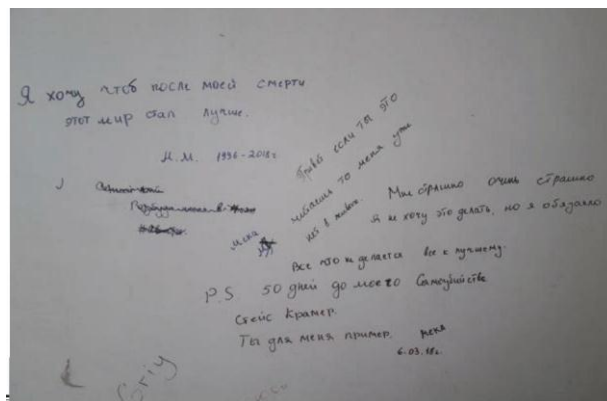 Я хочу чтоб после моей смерти
этот мир стал лучше.
Н.М. 1996-2018г
Привет если ты это
читаешь то меня уже
нет в живых.
Мне страшно очень страшно
я не хочу это делать, но я обязана
Все что не делается все к лучшему.
P.S 50 дней до моего Самоубийства
Стейс Крамер.
Ты для меня пример.
6.03.18г.
Sorry